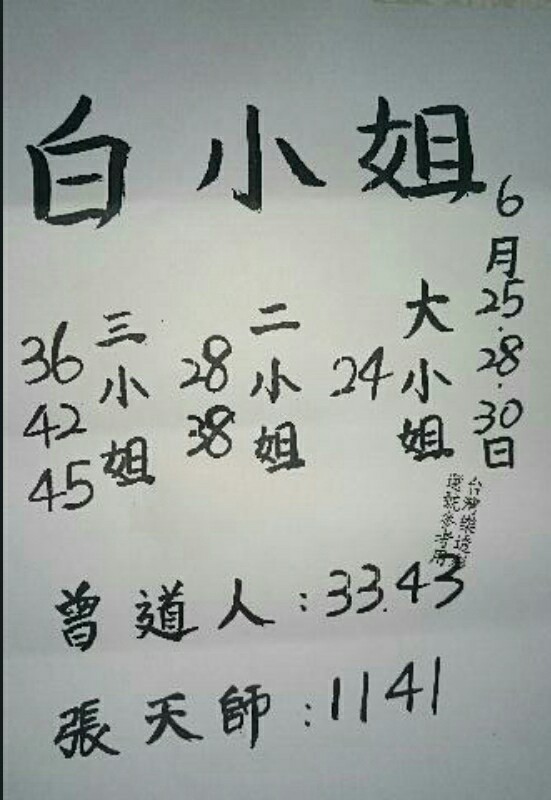 白小姐
6月25.28.30日
大小姐
24
二小姐
28
38
三小姐
36
42
45
曾道人:33.43
張天師:1141